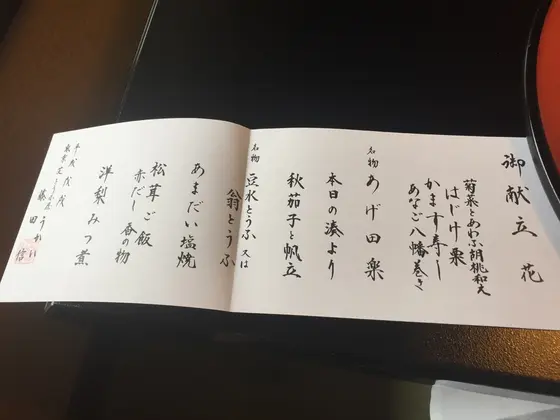 御献立 花
菊菜とあわふ胡桃和え
はじけ栗
かます寿し
あなご八幡巻き
名物 あげ田楽
本日の湊より
秋茄子と帆立
名物 豆水とうふ 又は
翁とうふ
あまだい塩焼
松茸ご飯
赤だし 香の物
洋梨みつ煮
平成戊戌
東京芝 とうふ屋うかい
藤田 信